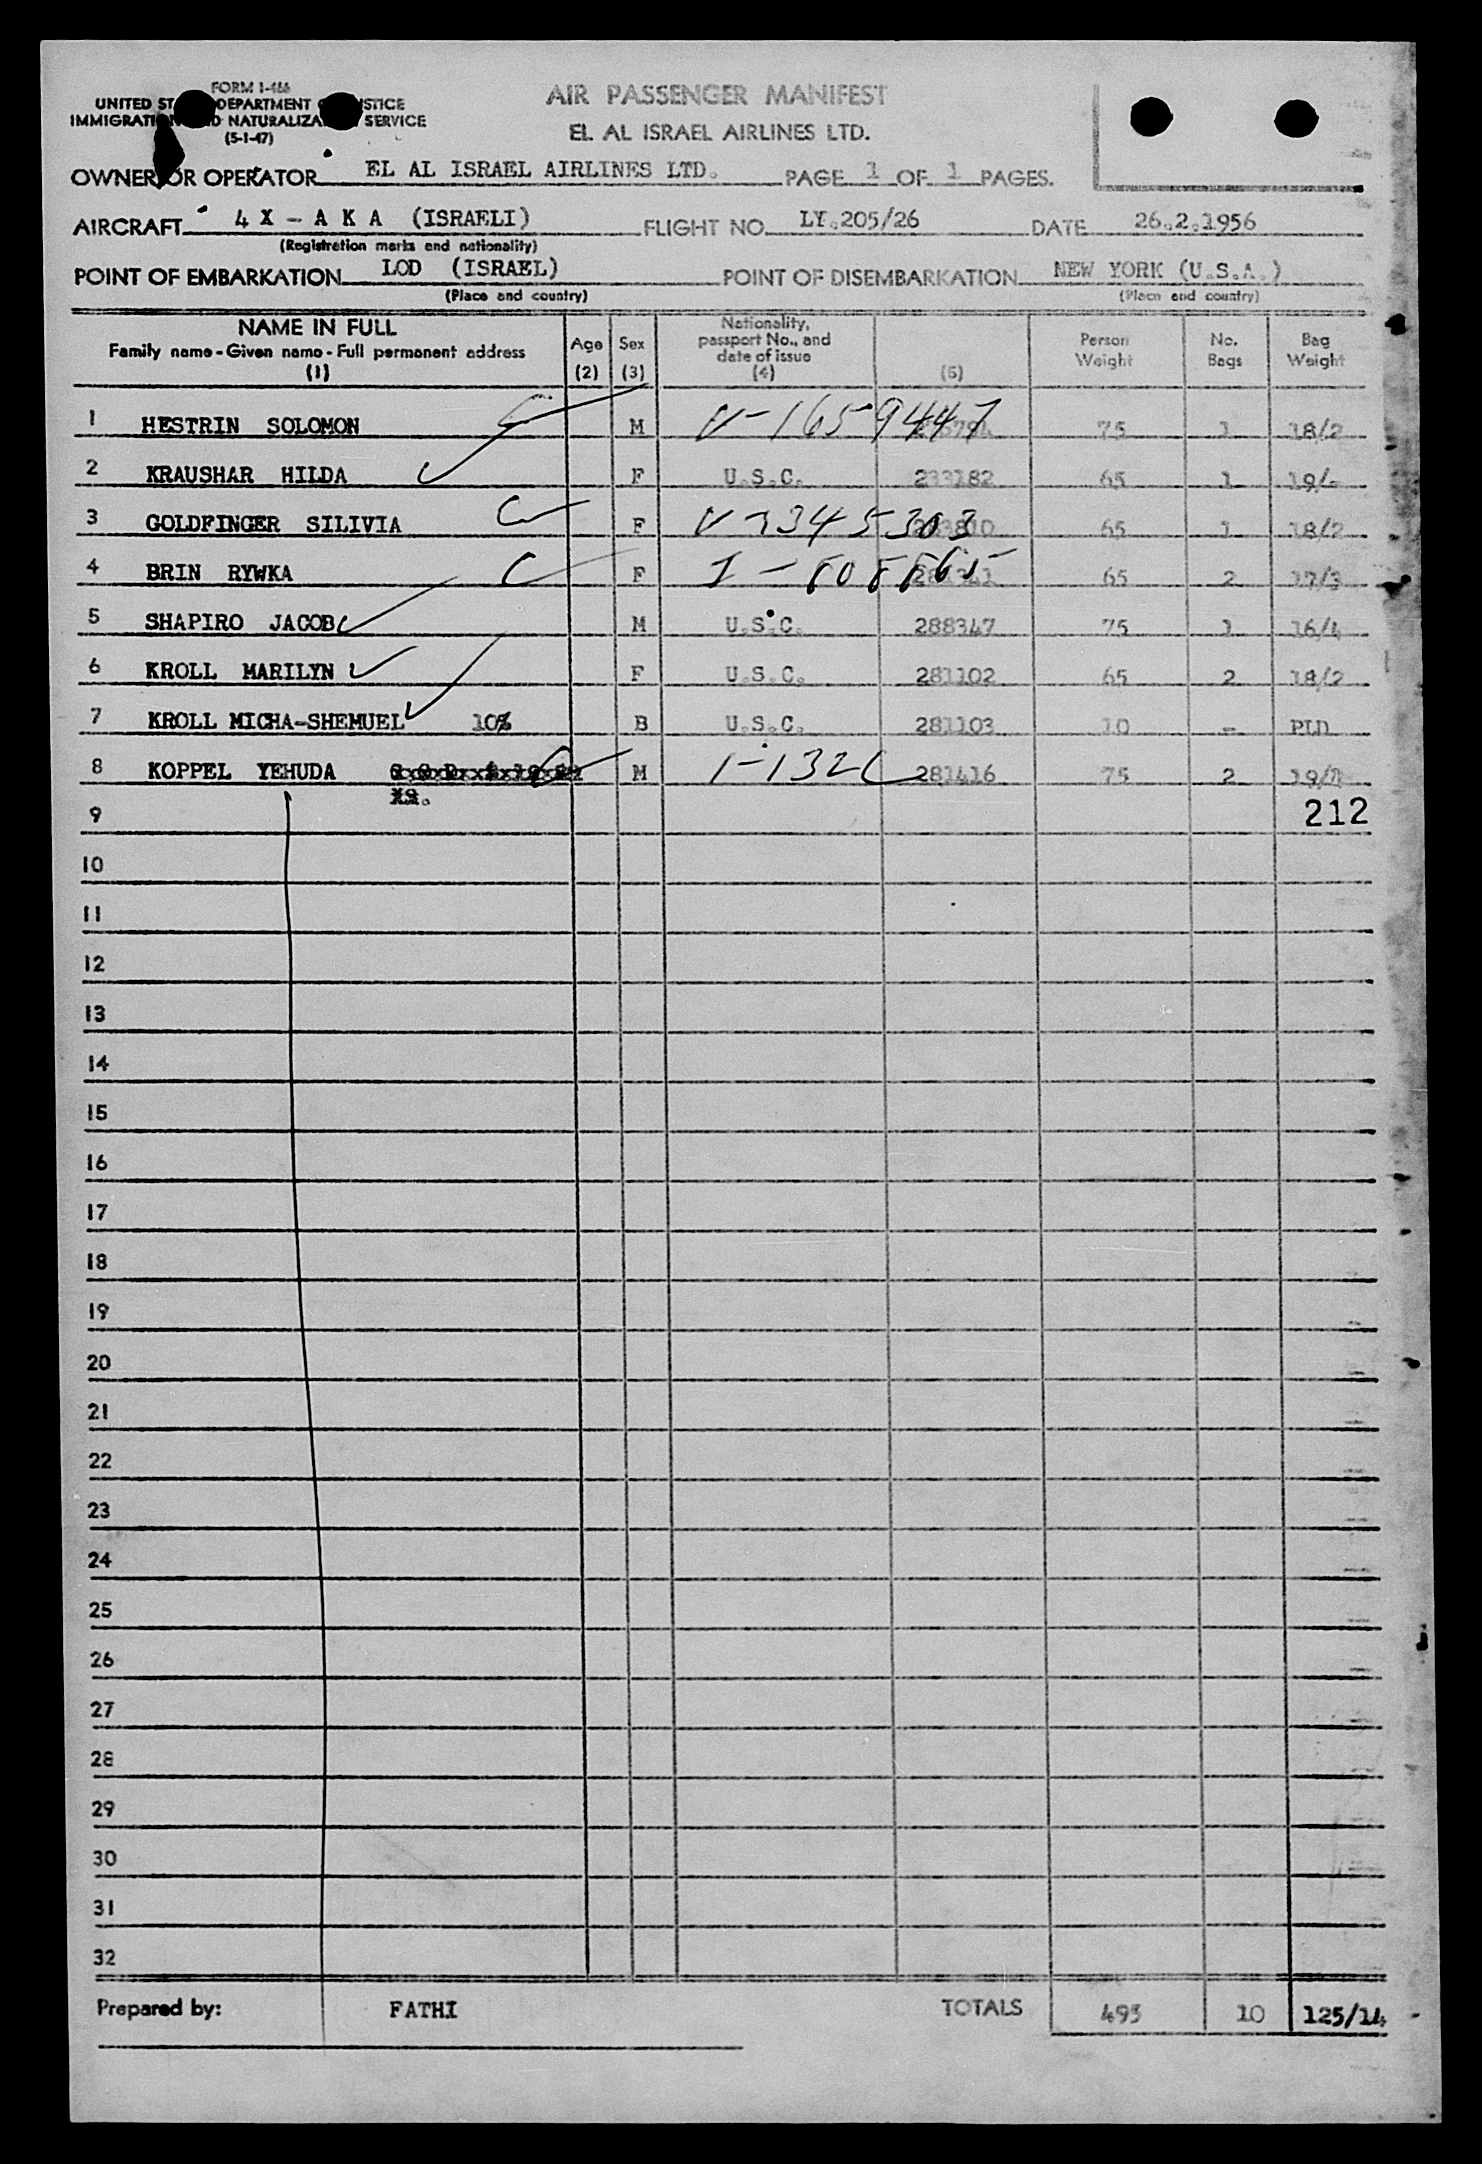 FORM I-466
UNITED ST DEPARTMENT STICE
IMMIGRATI NATURALIZA SERVICE
(5-1-47)
AIR PASSENGER MANIFEST
EL AL ISRAEL AIRLINES LTD.
OWNER OR OPERATOR EL AL ISRAEL AIRLINES LTD. PAGE 1 OF 1 PAGES.
AIRCRAFT 4 X - A K A (ISRAELI) FLIGHT NO. LY.205/26 DATE 26.2.1956
(Registration marks and nationality)
POINT OF EMBARKATION LOD (ISRAEL) POINT OF DISEMBARKATION NEW YORK (U.S.A.)
(Place and country) (Place and country)
NAME IN FULL
Family name - Given name - Full permanent address
(1)
Age
(2)
Sex
(3)
Nationality,
passport No., and
date of issue
(4)
(5)
Person
Weight
No.
Bags
Bag
Weight
1 HESTRIN SOLOMON M V-1659447 75 1 18/2
2 KRAUSHAR HILDA F U.S.C. 233182 65 1 19/-
3 GOLDFINGER SILIVIA F 65 1 18/2
4 BRIN RYWKA F 65 2 17/3
5 SHAPIRO JACOB M U.S.C. 288347 75 1 16/4
6 KROLL MARILYN F U.S.C. 281102 65 2 18/2
7 KROLL MICHA-SHEMUEL 10% B U.S.C. 281103 10 - PLD
8 KOPPEL YEHUDA M 281416 75 2
9 212
10
11
12
13
14
15
16
17
18
19
20
21
22
23
24
25
26
27
28
29
30
31
32
Prepared by: FATHI TOTALS 495 10 125/14